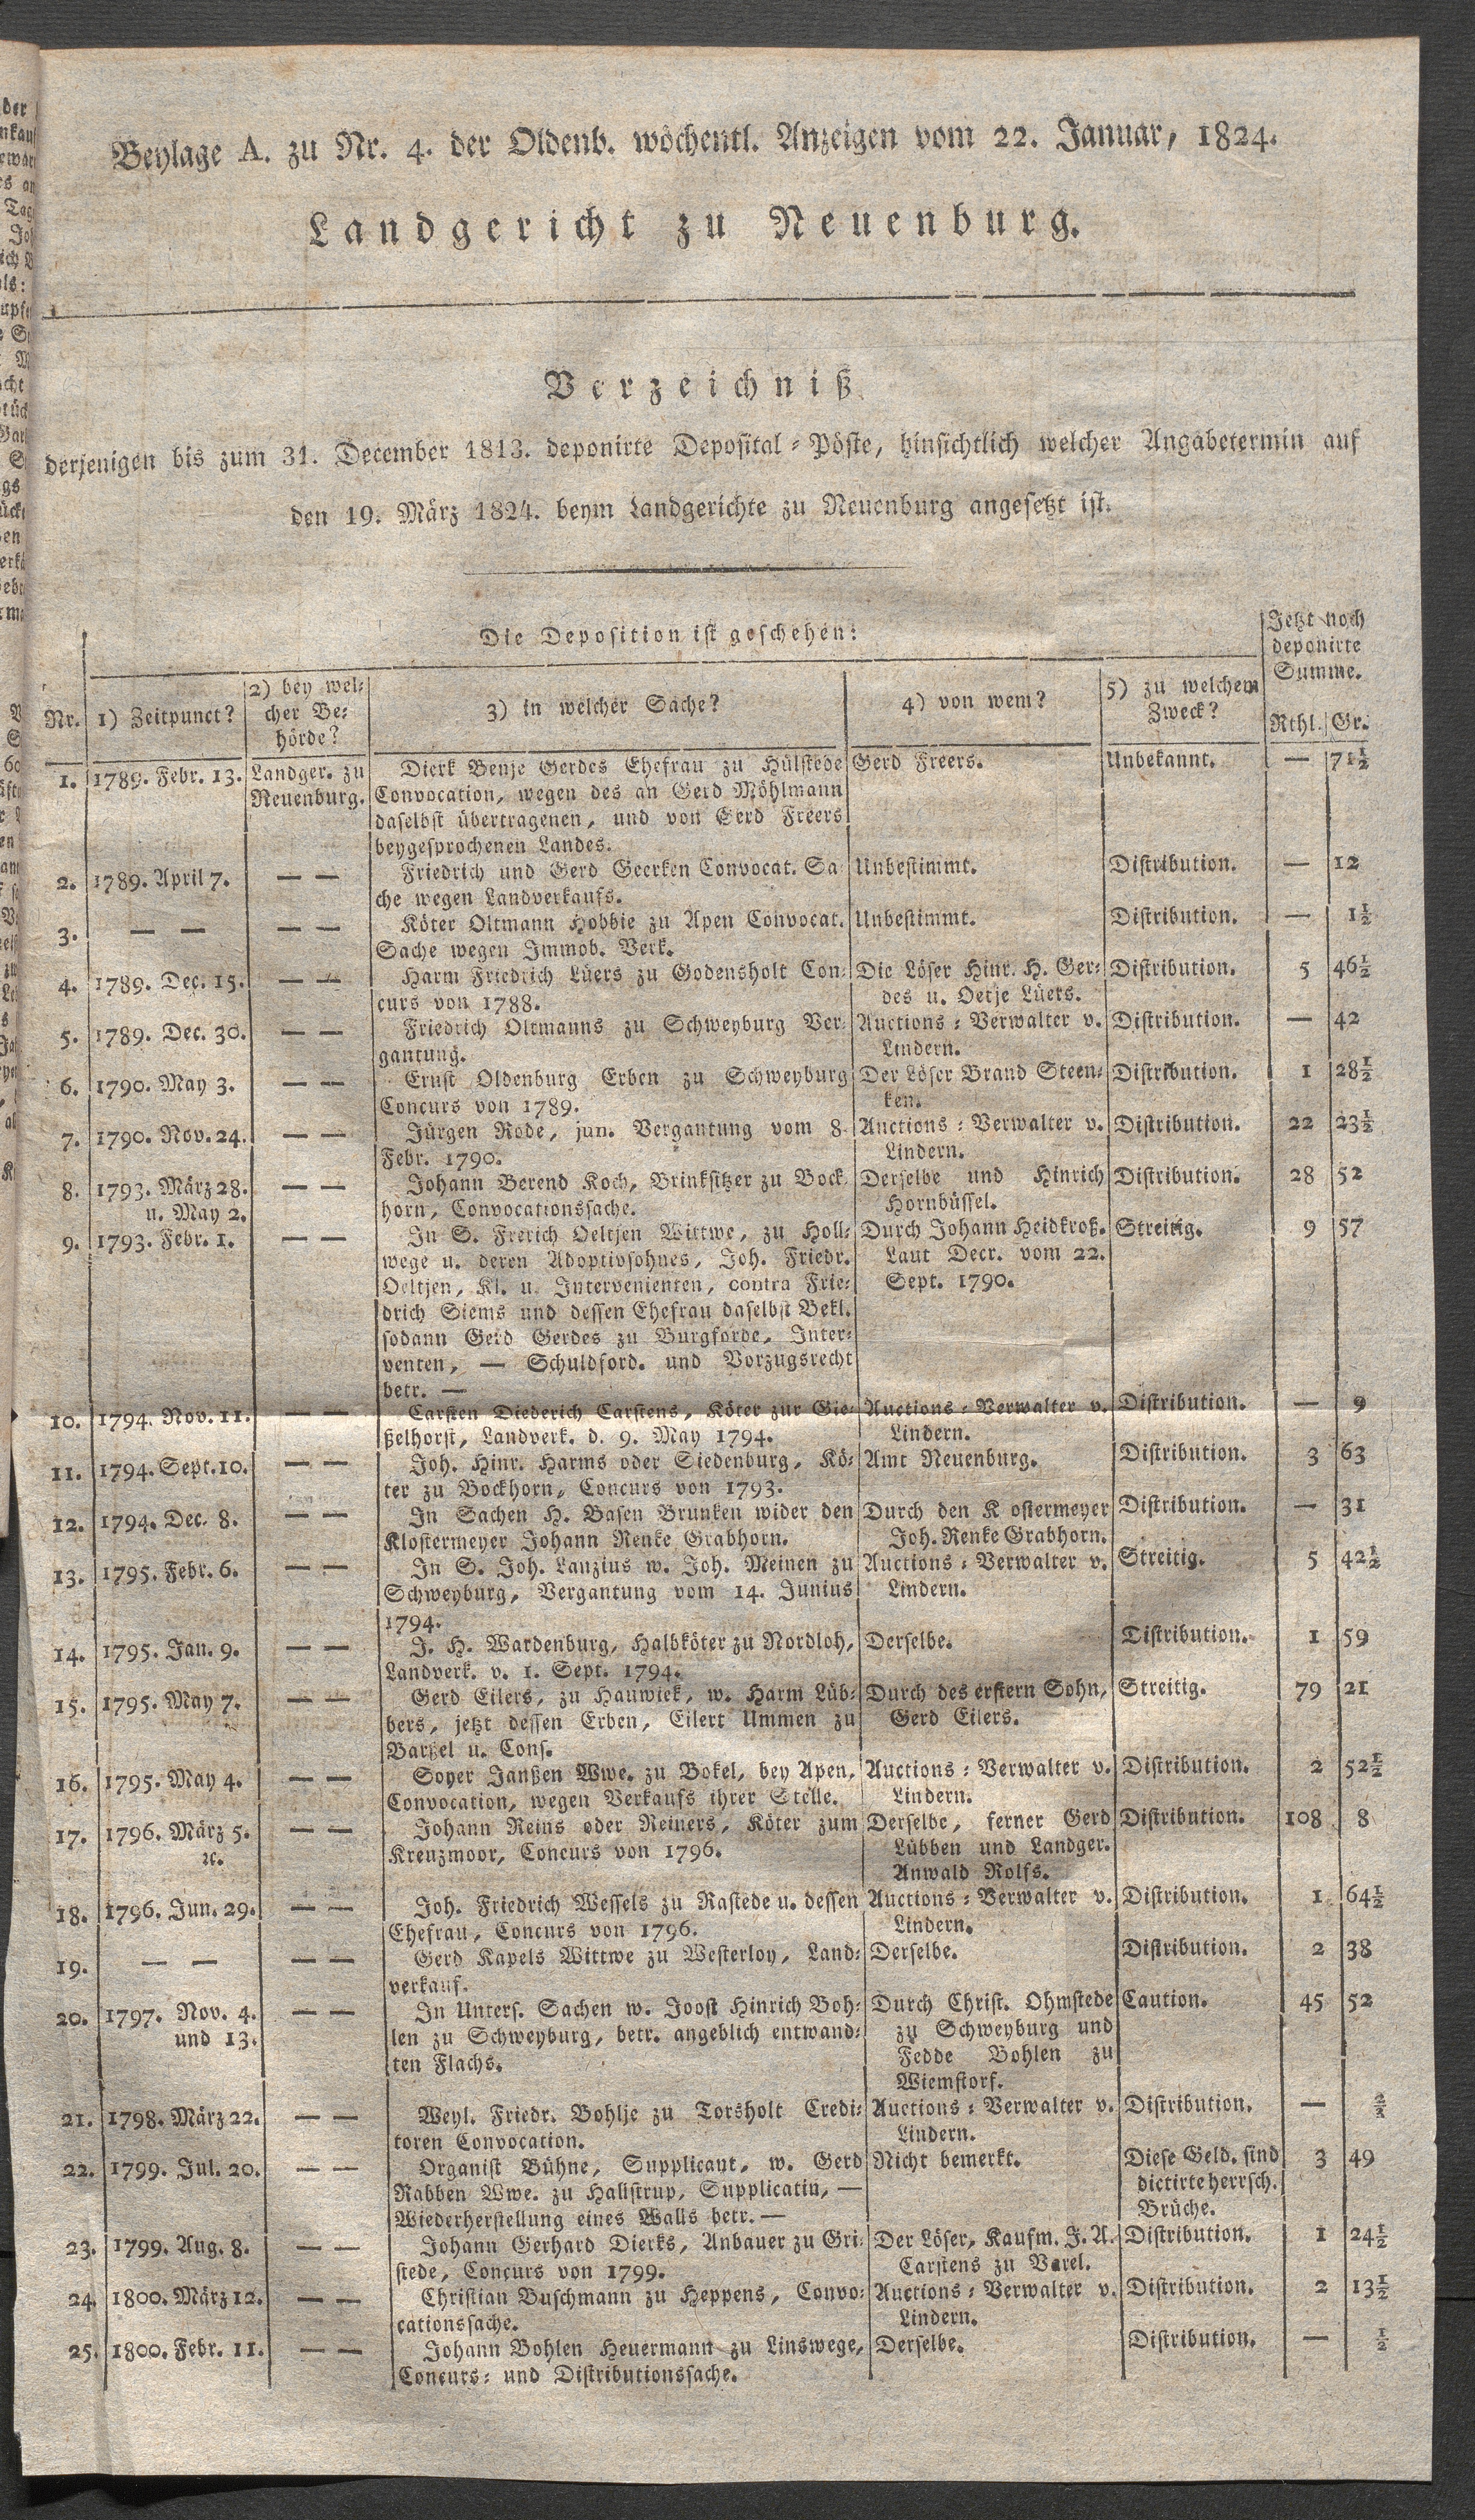 Beylage A. zu Nr. 4. der Oldenb. wöchentl. Anzeigen vom 22. Januar, 1824.
Landgericht zu Neuenburg.
Verzeichniß
derjenigen bis zum 31. December 1813. deponirte Deposital-Pöste, hinsichtlich welcher Angabetermin auf
den 19. März 1824. beym Landgerichte zu Neuenburg angesetzt ist.
Die Deposition ist geschehen:
Jetzt noch
deponirte
Summe.
Nr. 1) Zeitpunct?
2) bey wel-
cher Be-
hörde?
3) in welcher Sache?
4) von wem?
5) zu welchem
Zweck?
Rthl. Gr.
1. 1789. Febr. 13. Landger. zu Dierk Benje Gerdes Ehefrau zu Hülstede Gerd Freers. Unbekannt. — 71½
Neuenburg. Convocation, wegen des an Gerd Möhlmann
daselbst übertragenen, und von Gerd Freers
beygesprochenen Landes.
2. 1789. April 7. — — Friedrich und Gerd Geerken Convocat. Sa- Unbestimmt. Distribution. — 12
che wegen Landverkaufs.
3. — — — — Köter Oltmann Hobbie zu Apen Convocat. Unbestimmt. Distribution. — 1½
Sache wegen Immob. Verk.
4. 1789. Dec. 15. — — Harm Friedrich Lüers zu Godensholt Con- Die Löser Hinr. H. Ger- Distribution. 5 46½
curs von 1788. des u. Oetje Lüers.
5. 1789. Dec. 30. — — Friedrich Oltmanns zu Schweyburg Ver- Auctions-Verwalter v. Distribution. — 42
gantung. Lindern.
6. 1790. May 3. — — Ernst Oldenburg Erben zu Schweyburg Der Löser Brand Steen- Distribution. 1 28½
Concurs von 1789. ken.
7. 1790. Nov. 24. — — Jürgen Rode, jun. Vergantung vom 8 Auctions-Verwalter v. Distribution. 22 23½
Febr. 1790. Lindern.
8. 1793. März 28. — — Johann Berend Koch, Brinksitzer zu Bock- Derselbe und Hinrich Distribution. 28 52
u. May 2. horn, Convocationssache. Hornbüssel.
9. 1793. Febr. 1. — — In S. Frerich Oeltjen Wittwe, zu Holl- Durch Johann Heidkroß. Streitig. 9 57
wege u. deren Adoptivsohnes, Joh. Friedr. Laut Decr. vom 22.
Oeltjen, Kl. u. Intervenienten, contra Frie- Sept. 1790.
drich Siems und dessen Ehefrau daselbst Bekl.
sodann Gerd Gerdes zu Burgforde, Inter-
venten, — Schuldford. und Vorzugsrecht
betr. —
10. 1794. Nov. 11. — — Carsten Diederich Carstens, Köter zur Gie- Auctions-Verwalter v. Distribution. — 9
ßelhorst, Landverk. d. 9. May 1794. Lindern.
11. 1794. Sept. 10. — — Joh. Hinr. Harms oder Siedenburg, Kö- Amt Neuenburg. Distribution. 3 63
ter zu Bockhorn, Concurs von 1793.
12. 1794. Dec. 8. — — In Sachen H. Basen Brunken wider den Durch den K ostermeyer Distribution. — 31
Klostermeyer Johann Renke Grabhorn. Joh. Renke Grabhorn.
13. 1795. Febr. 6. — — In S. Joh. Lanzius w. Joh. Meinen zu Auctions-Verwalter v. Streitig. 5 42½
Schweyburg, Vergantung vom 14. Junius Lindern.
1794.
14. 1795. Jan. 9. — — J. H. Wardenburg, Halbköter zu Nordloh, Derselbe. Distribution. 1 59
Landverk. v. 1. Sept. 1794.
15. 1795. May 7. — — Gerd Eilers, zu Hauwiek, w. Harm Lüb- Durch des erstern Sohn, Streitig. 79 21
bers, jetzt dessen Erben, Eilert Ummen zu Gerd Eilers.
Barßel u. Cons.
16. 1795. May 4. — — Soyer Janßen Wwe. zu Bokel, bey Apen, Auctions-Verwalter v. Distribution. 2 52½
Convocation, wegen Verkaufs ihrer Stelle. Lindern.
17. 1796. März 5. — — Johann Reins oder Reiners, Köter zum Derselbe, ferner Gerd Distribution. 108 8
ꝛc. Kreuzmoor, Concurs von 1796. Lübben und Landger.
Anwald Rolfs.
18. 1796. Jun. 29. — — Joh. Friedrich Wessels zu Rastede u. dessen Auctions-Verwalter v. Distribution. 1 64½
Ehefrau, Concurs von 1796. Lindern.
19. — — — — Gerd Kapels Wittwe zu Westerloy, Land- Derselbe. Distribution. 2 38
verkauf.
20. 1797. Nov. 4. — — In Unters. Sachen w. Joost Hinrich Boh- Durch Christ. Ohmstede Caution. 45 52
und 13. len zu Schweyburg, betr. angeblich entwand- zu Schweyburg und
ten Flachs. Fedde Bohlen zu
Wiemstorf.
21. 1798. März 22. — — Weyl. Friedr. Bohlje zu Torsholt Credi- Auctions-Verwalter v. Distribution. —
toren Convocation. Lindern.
22. 1799. Jul. 20. — — Organist Bühne, Supplicant, w. Gerd Nicht bemerkt. Diese Geld. sind 3 49
Rabben Wwe. zu Hallstrup, Supplicatin, — dictirte herrsch.
Wiederherstellung eines Walls betr. — Brüche.
23. 1799. Aug. 8. — — Johann Gerhard Dierks, Anbauer zu Gri- Der Löser, Kaufm. J. A. Distribution. 1 24½
stede, Concurs von 1799. Carstens zu Varel.
24. 1800. März 12. — — Christian Buschmann zu Heppens, Convo- Auctions-Verwalter v. Distribution. 2 13½
cationssache. Lindern.
25. 1800. Febr. 11. — — Johann Bohlen Heuermann zu Linswege, Derselbe. Distribution. — ½
Concurs- und Distributionssache.